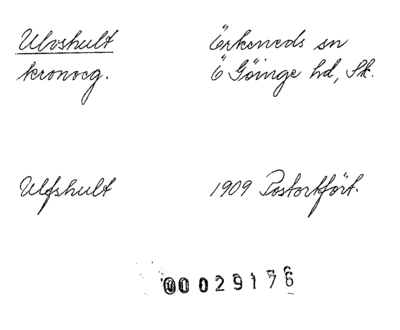 Ulvshult Örkeneds sn
kronoeg. Ö Göinge hd, Sk.
Ulfshult 1909 Postortfört.
00029176